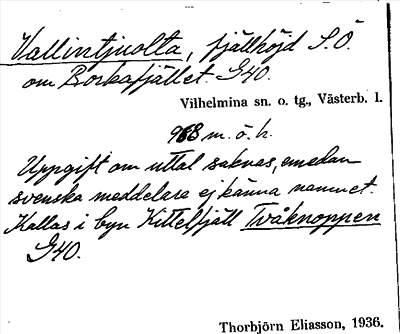 Vallintjuolta, fjällhöjd S.Ö.
om Borkafjället. G40.
Vilhelmina sn. o. tg., Västerb. l.
968 m. ö. h.
Uppgift om uttal saknas, emedan
svenska meddelare ej känna namnet.
Kallas i byn Kittelfjäll Tvåknoppen
G40.
Thorbjörn Eliasson, 1936.